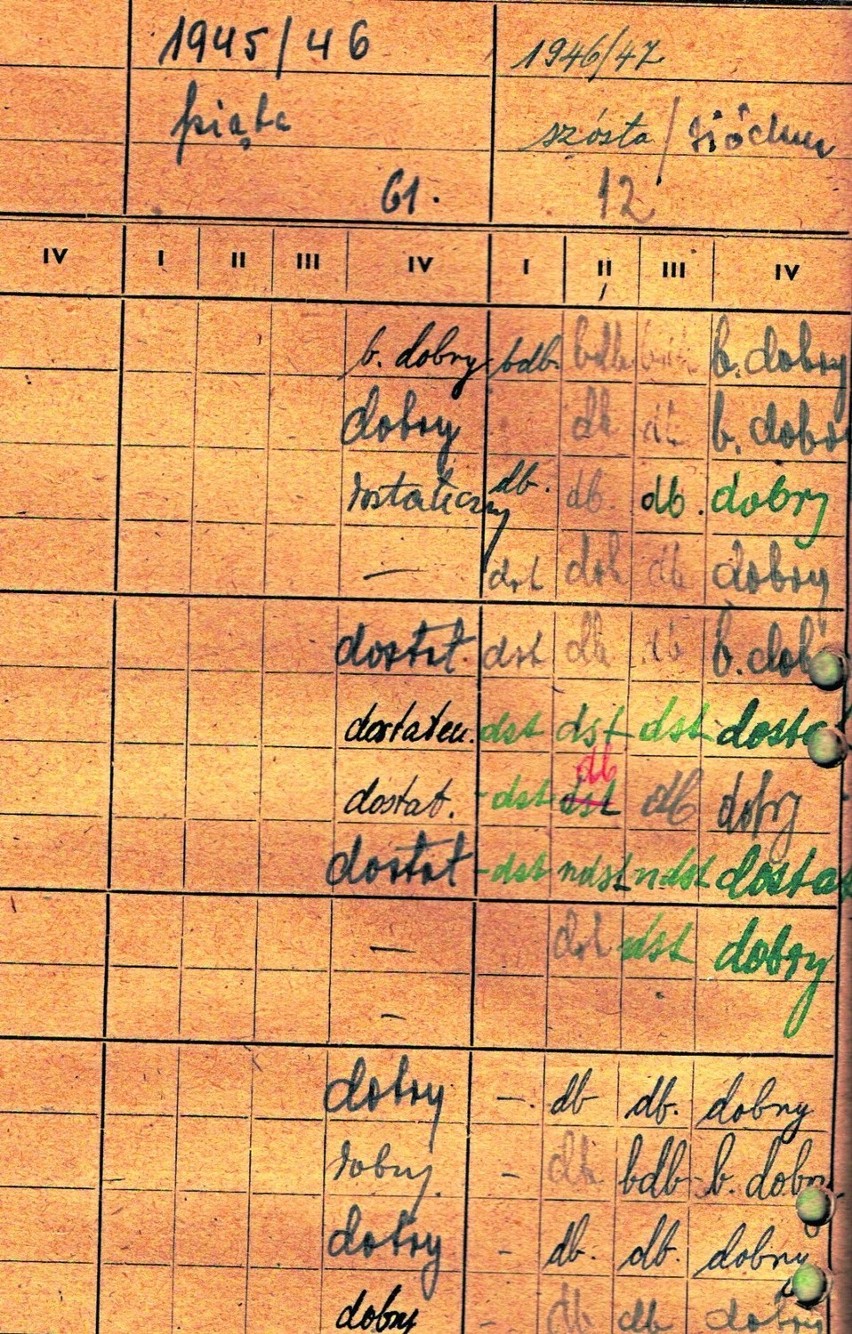 1945/46 1946/47
piąta szósta /
61. 12
IV I II III IV I II III IV
b. dobry bdb. bdb b. dobry
dobry db db b. dobr
dostateczny db. db. db. dobry
— dst dst db dobry
dostat. dst db db b. dob
dostatecz. dst dst dst dosta
dostat. - dst db dst db dobry
dostat - dst ndst ndst dostat
— dst dst dobry
—
dobry — db db. dobry
dobry. - db bdb b. dobry
dobry - db. db. dobry
dobry - db db dobry